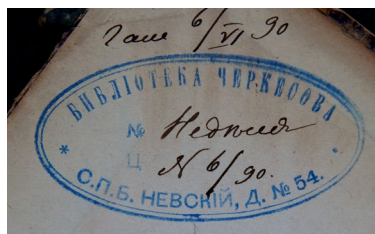 6/VI 90
БИБЛІОТЕКА ЧЕРКЕСОВА
№ Недѣля
Ц № 6/90.
С.П.Б. НЕВСКІЙ, Д. № 54.